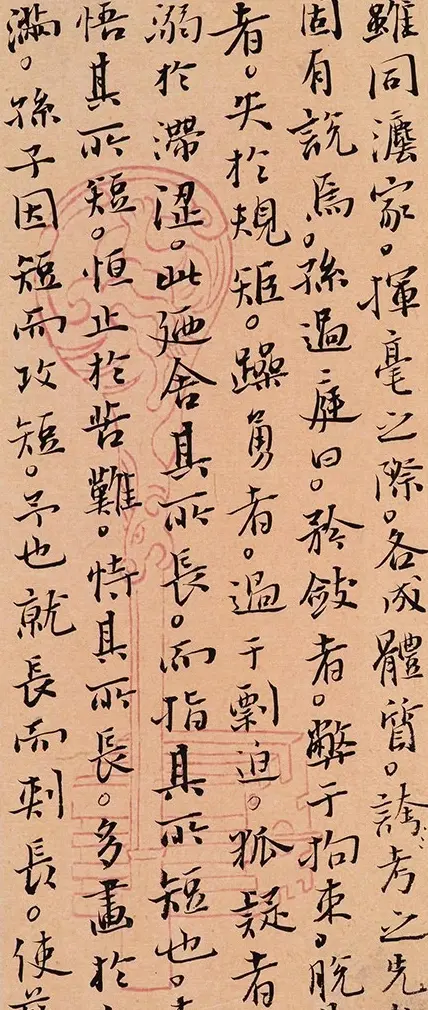 雖同灋家。揮毫之際。各成體質。考之先
固有說焉。孫過庭曰。矜斂者。弊于拘束。脫
者。失於規矩。躁勇者。過于剽迫。狐疑者
溺於滯澀。此廼舍其所長。而指其所短也。
悟其所短。恒止於苦難。恃其所長。多畫於
滿。孫子因短而攻短。予也就長而刺長。使